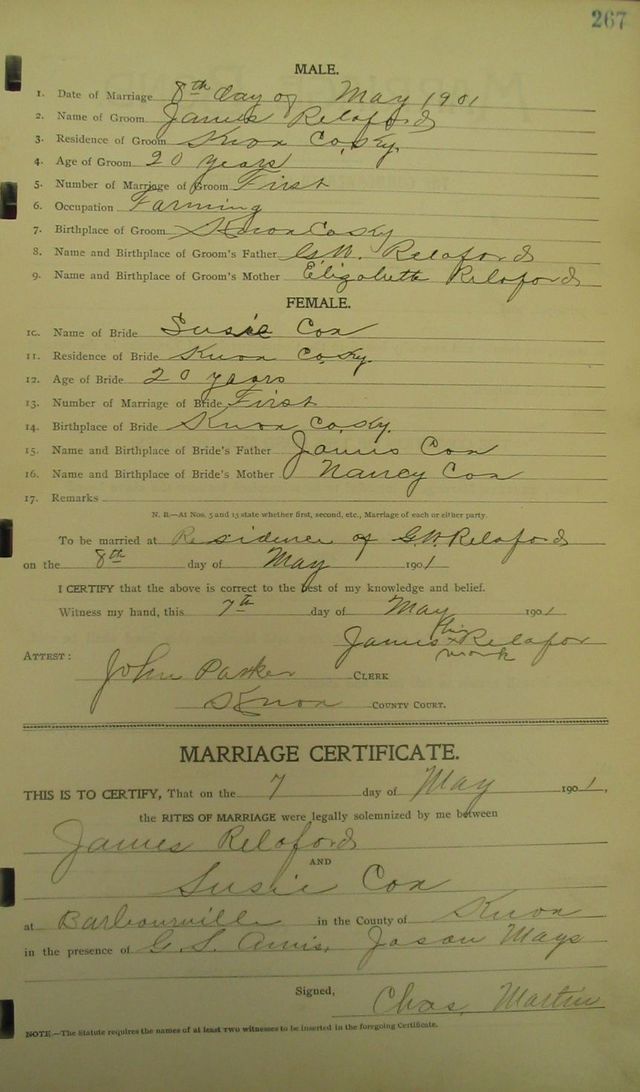 267
MALE.
1. Date of Marriage 8th day of May 1901
2. Name of Groom James Relaford
3. Residence of Groom Knox Co, Ky.
4. Age of Groom 20 years
5. Number of Marriage of Groom First
6. Occupation Farming
7. Birthplace of Groom Knox Co Ky
8. Name and Birthplace of Groom's Father G.W. Relaford
9. Name and Birthplace of Groom's Mother Elizabeth Relaford
FEMALE.
10. Name of Bride Susie Cox
11. Residence of Bride Knox Co, Ky.
12. Age of Bride 20 years
13. Number of Marriage of Bride First
14. Birthplace of Bride Knox Co, Ky.
15. Name and Birthplace of Bride's Father James Cox
16. Name and Birthplace of Bride's Mother Nancy Cox
17. Remarks
N. B.—At Nos. 5 and 13 state whether first, second, etc., Marriage of each or either party.
To be married at Residence of G.W. Relaford
on the 8th day of May 1901
I CERTIFY that the above is correct to the best of my knowledge and belief.
Witness my hand, this 7th day of May 1901
James his x mark Relafor
ATTEST: John Parker CLERK
Knox COUNTY COURT.
MARRIAGE CERTIFICATE.
THIS IS TO CERTIFY, That on the 7 day of May 1901,
the RITES OF MARRIAGE were legally solemnized by me between
James Relaford
AND
Susie Cox
at Barbourville in the County of Knox
in the presence of G. S. Amis, Jason Mays
Signed, Chas. Martin
NOTE.—The Statute requires the names of at least two witnesses to be inserted in the foregoing Certificate.